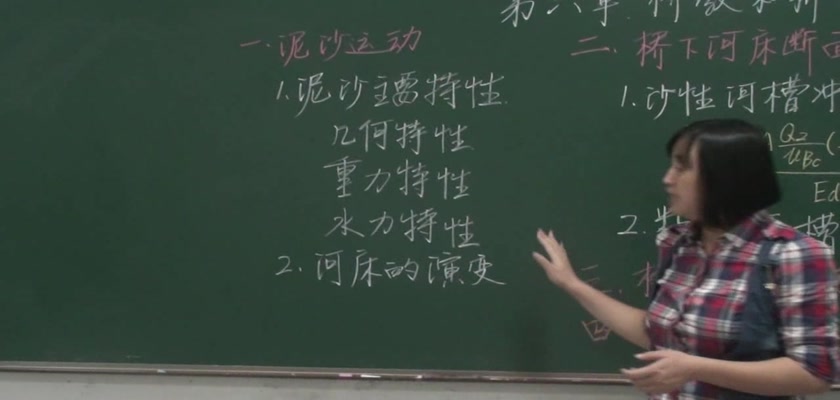 第六章
一.泥沙运动
1.泥沙主要特性
几何特性
重力特性
水力特性
2.河床的演变
二.桥下河床断面
1.沙性河槽冲
Q2
μBc
Ed
2.
槽
三.
四